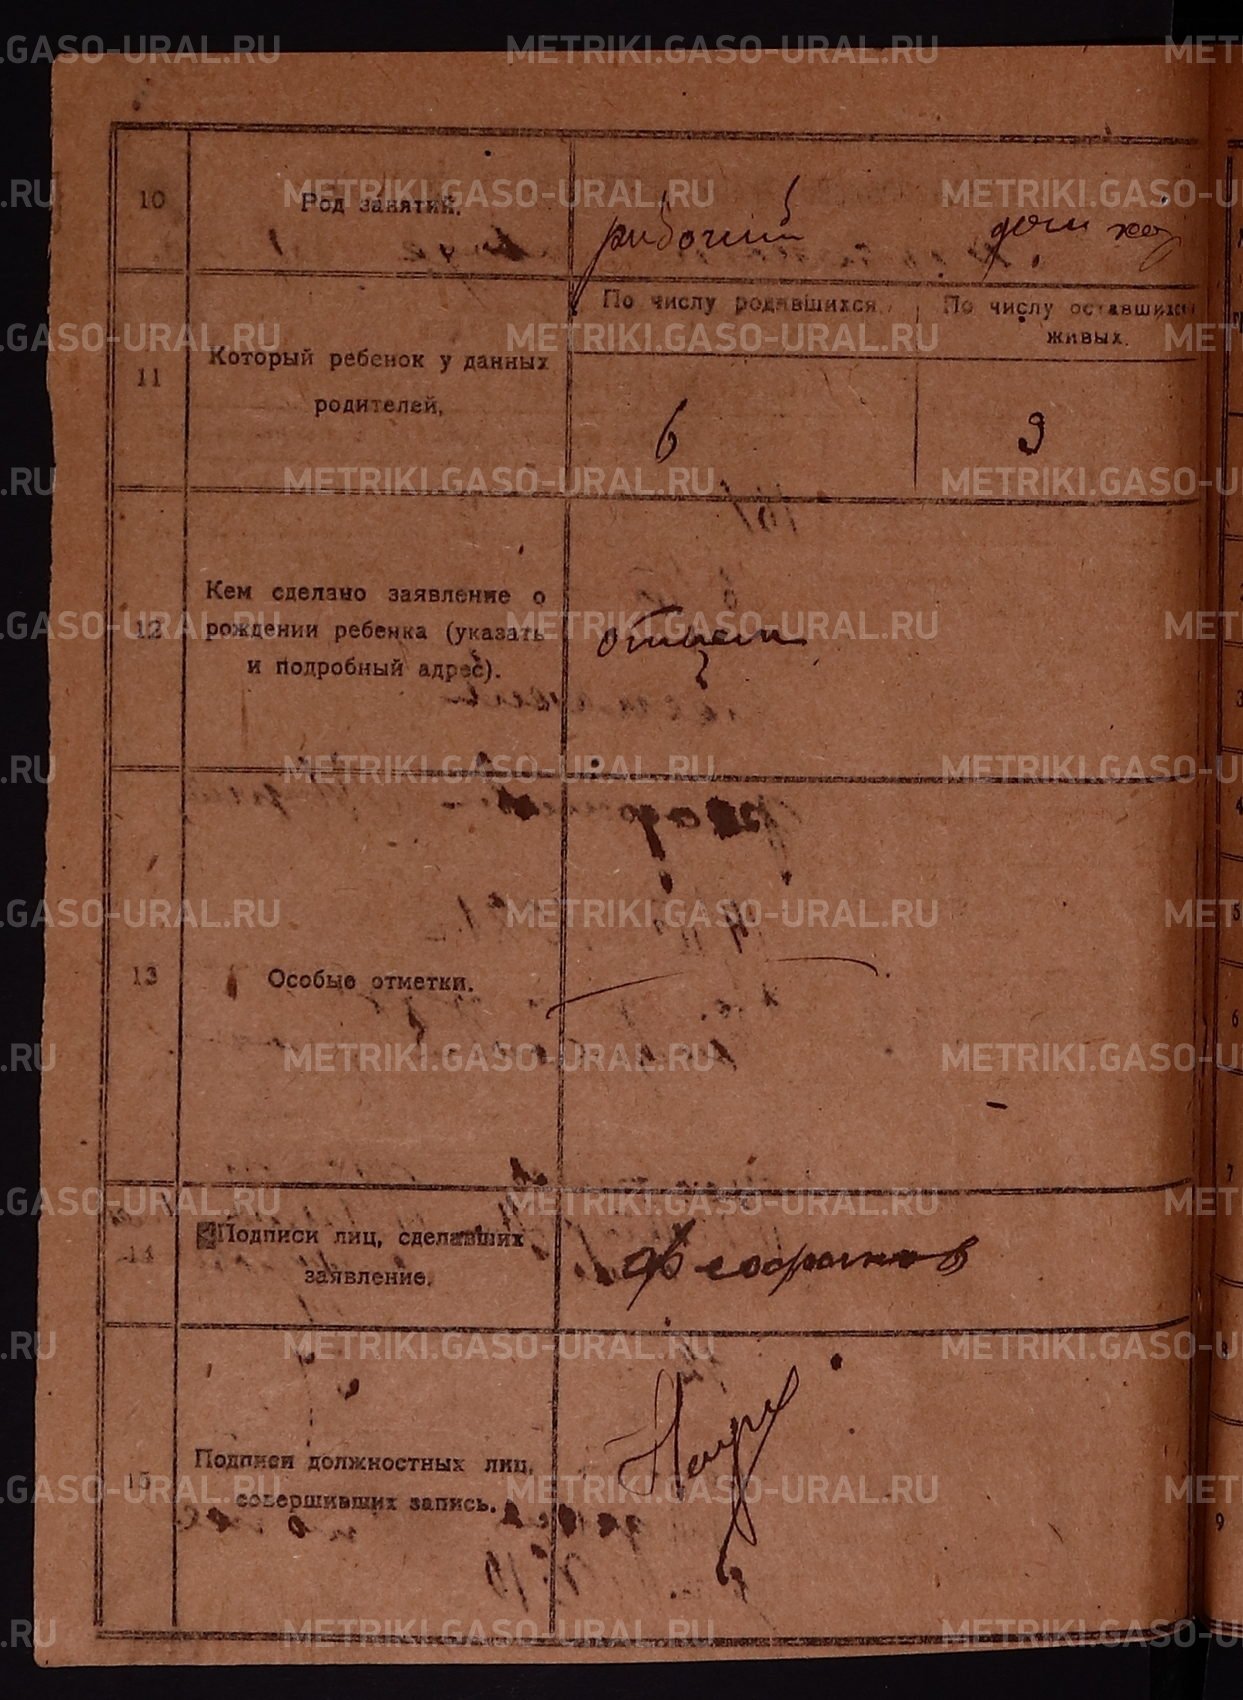 10 Род занятий. рабочий дом хоз
По числу родившихся. По числу оставшихся
живых.
11 Который ребенок у данных
родителей.
6 3
12 Кем сделано заявление о
рождении ребенка (указать
и подробный адрес).
отцем
13 Особые отметки.
14 Подписи лиц, сделавших
заявление.
15 Подписи должностных лиц,
совершивших запись.
METRIKI.GASO-URAL.RU